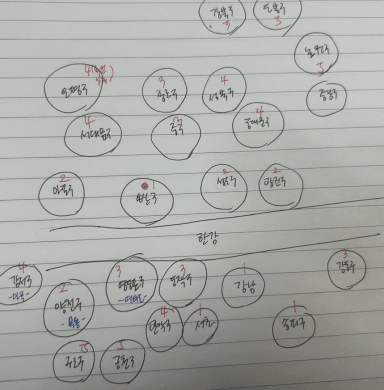 강북구
3
도봉구
3
노원구
5
은평구
4
종로구
3
성북구
4
중랑구
서대문구
4
중구
동대문구
4
마포구
2
용산구
1
성동구
2
광진구
2
한강
강서구
4
-마곡-
양천구
2
-목동-
영등포구
3
-여의도-
동작구
3
관악구
4
서초
1
강남
1
송파구
1
강동구
3
구로구
5
금천구
5